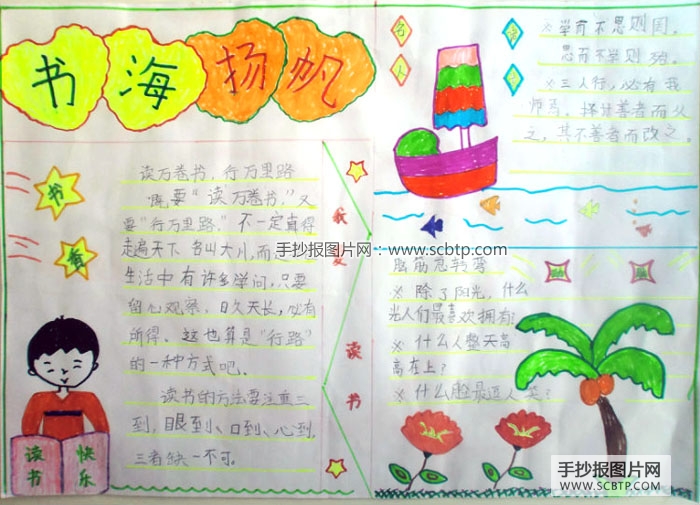 书海扬帆
书
香
读万卷书，行万里路
既要“读万卷书，”又
要“行万里路，”不一定真得
走遍天下 名叫大川，而是
生活中有许多学问，只要
留心观察，日久天长，必有
所得。这也算是“行路”
的一种方式吧。
读书的方法要注重三
到，眼到、口到、心到，
三者缺一不可。
读书
快乐
我爱读书
名
人
※ 学而不思则罔，
思而不学则殆。
※ 三人行，必有我
师焉，择其善者而从
之，其不善者而改之。
手抄报图片网：www.scbtp.com
脑筋急转弯
※ 除了阳光，什么
光人们最喜欢拥有？
※ 什么人整天高
高在上？
※ 什么脸最逗人笑？
手抄报图片网
WWW.SCBTP.COM